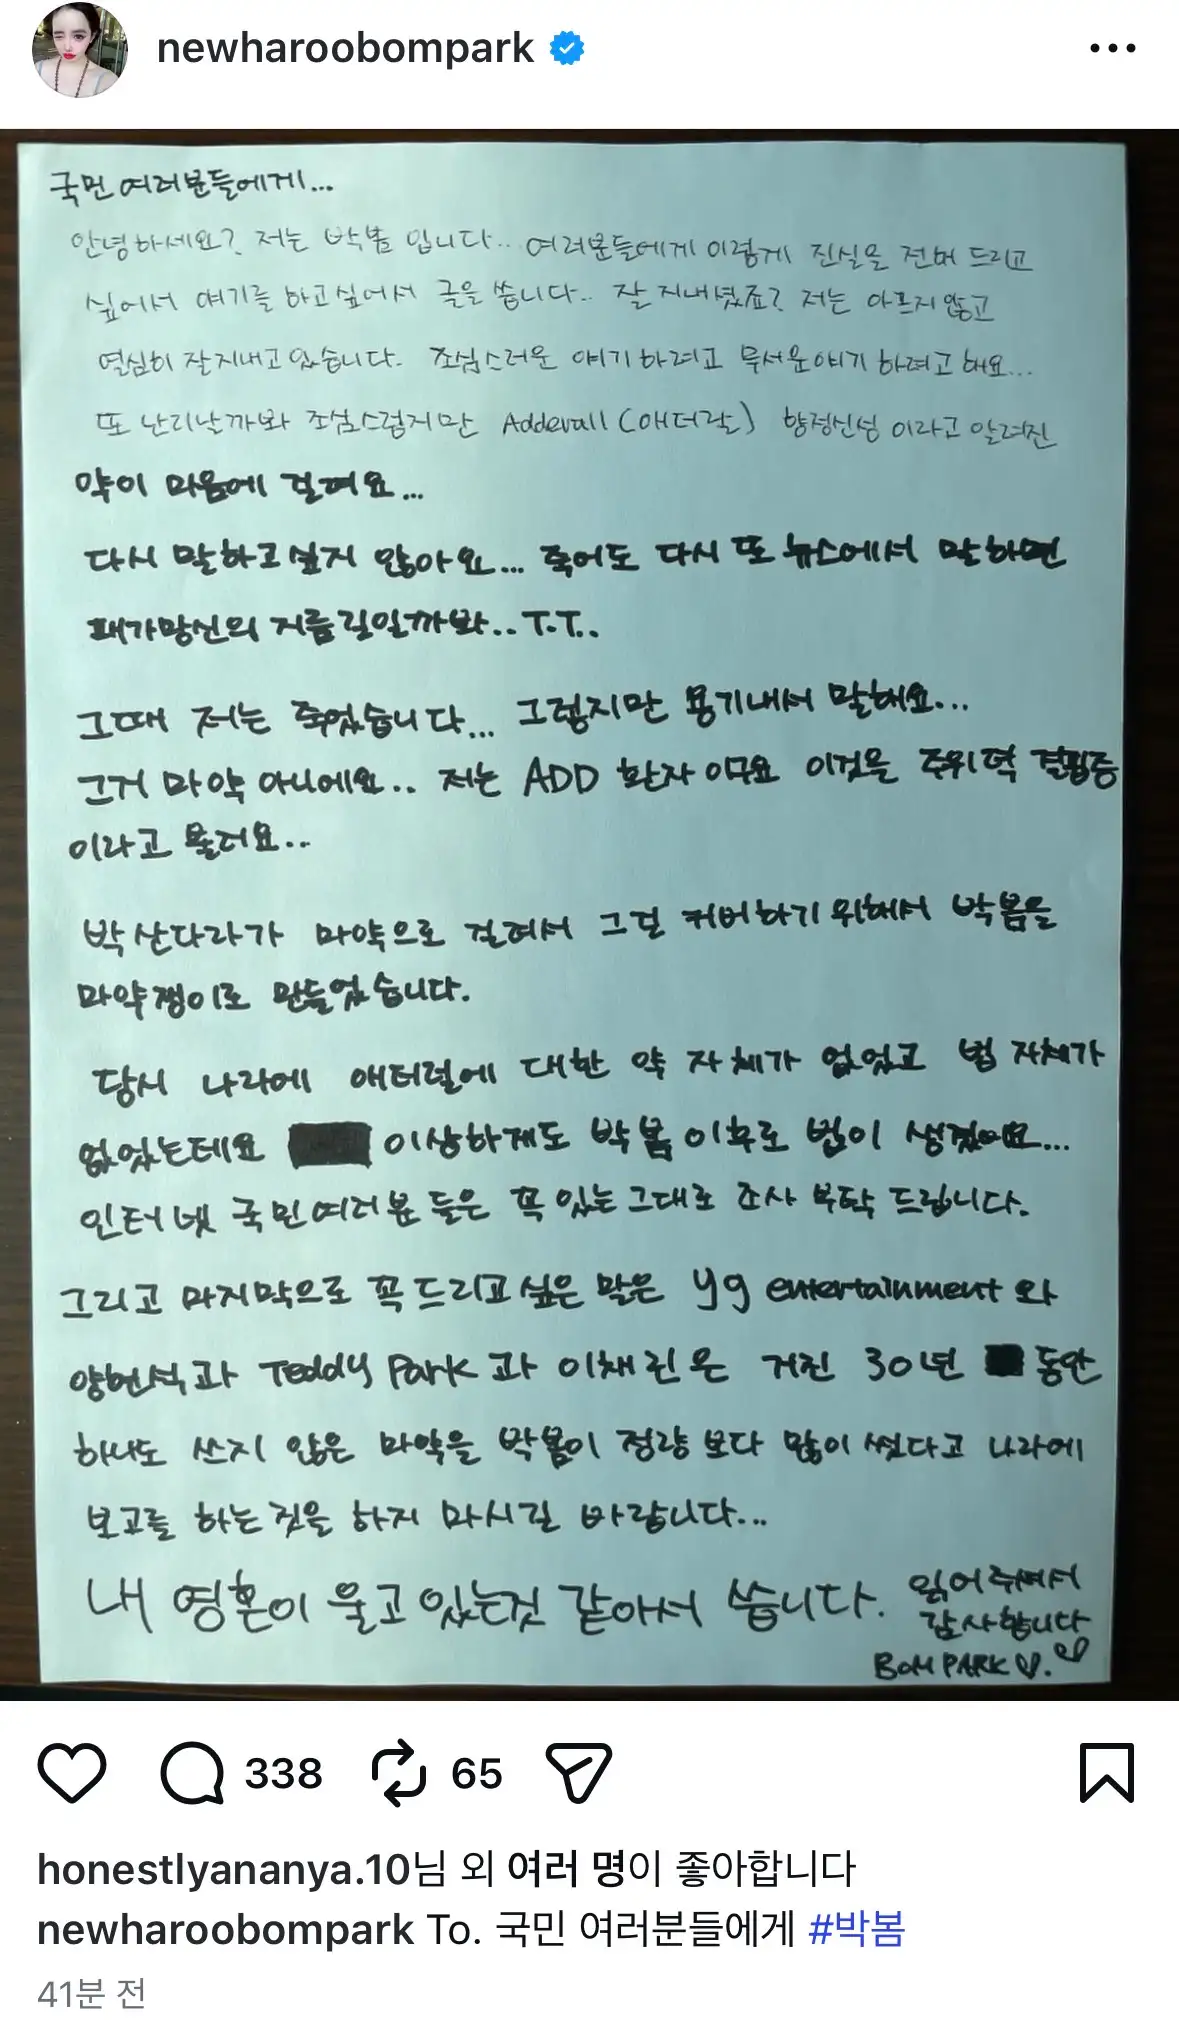 newharoobompark
국민 여러분들에게...
안녕하세요? 저는 박봄 입니다.. 여러분들에게 이렇게 진실을 전해 드리고
싶어서 얘기를 하고싶어서 글을 씁니다.. 잘 지내셨죠? 저는 아프지않고
열심히 잘지내고 있습니다. 조심스러운 얘기 하려고 무서운얘기 하려고 해요...
또 난리날까봐 조심스럽지만 Adderall (애더랄) 향정신성 이라고 알려진
약이 마음에 걸려요...
다시 말하고싶지 않아요... 죽어도 다시 또 뉴스에서 말하면
패가망신의 지름길일까봐.. T.T..
그때 저는 죽었습니다... 그렇지만 용기내서 말해요...
그거 마약 아니에요.. 저는 ADD 환자 이구요 이것을 주위력 결핍증
이라고 불러요..
박산다라가 마약으로 걸려서 그걸 커버하기 위해서 박봄을
마약쟁이로 만들었습니다.
당시 나라에 애터럴에 대한 약 자체가 없었고 법 자체가
없었는데요 이상하게도 박봄 이후로 법이 생겼어요...
인터넷 국민여러분 들은 꼭 있는그대로 조사 부탁 드립니다.
그리고 마지막으로 꼭 드리고싶은 말은 yg entertainment 와
양현석과 Teddy Park 과 이채린은 거진 30년 동안
하나도 쓰지 않은 마약을 박봄이 정량 보다 많이 썼다고 나라에
보고를 하는 것을 하지 마시길 바랍니다...
내 영혼이 울고 있는것 같아서 씁니다. 읽어주셔서
감사합니다
BOM PARK ♡. ♡
338
65
honestlyananya.10님 외 여러 명이 좋아합니다
newharoobompark To. 국민 여러분들에게 #박봄
41분 전